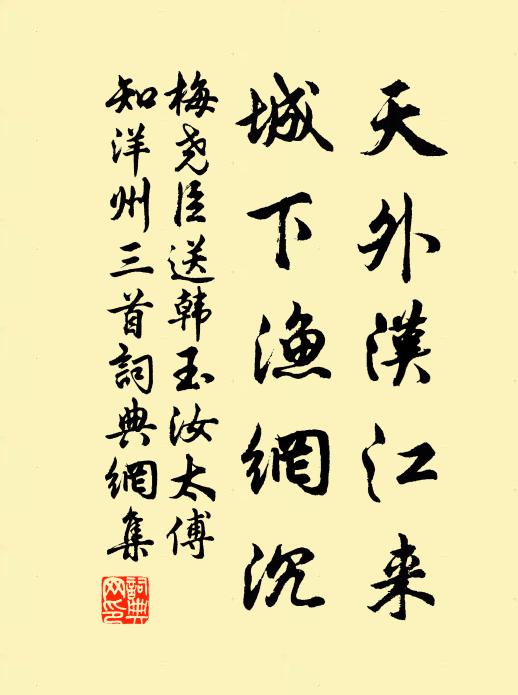 天外漢江来
城下漁網沉
梅尧臣送韩玉汝太傅
知洋州三首詞典網集
詞典
网印